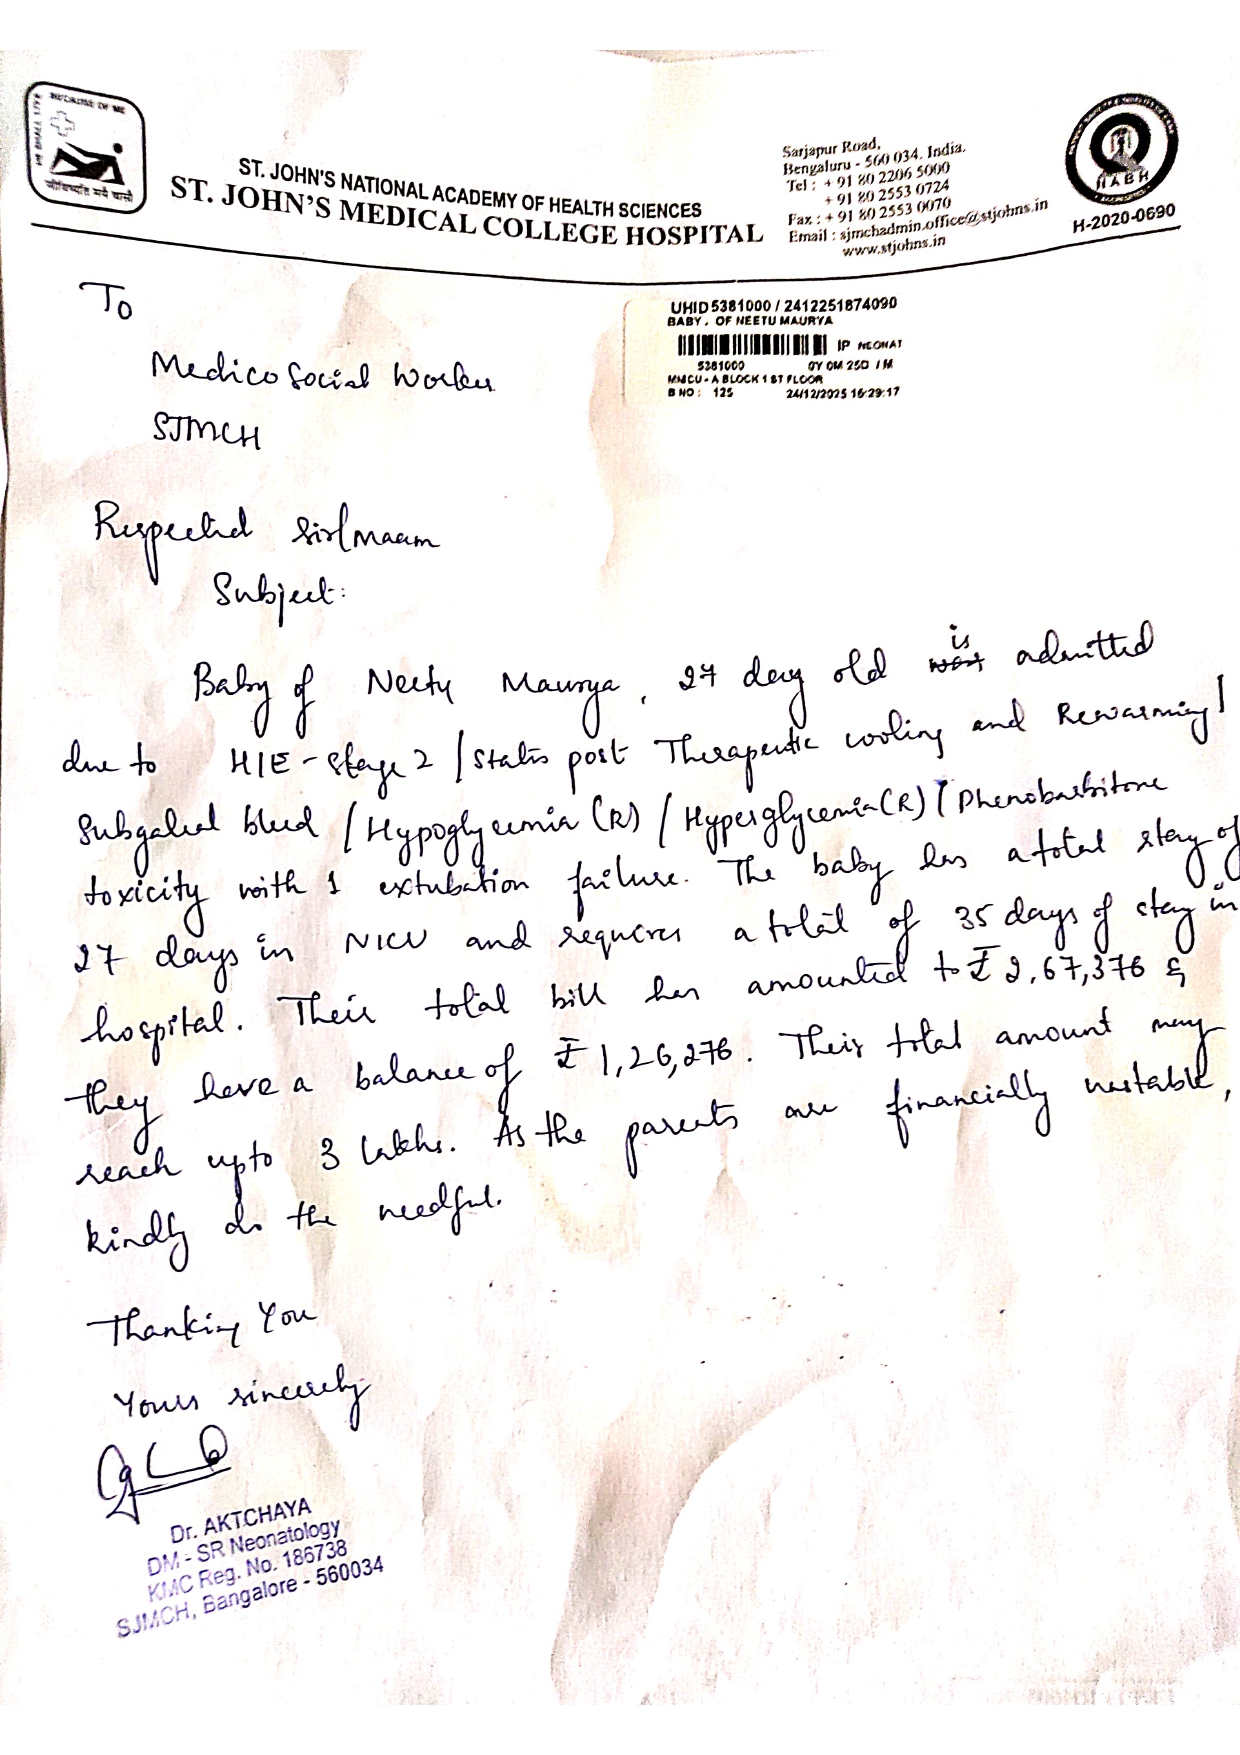 BECAUSE OF ME
ST. JOHN'S NATIONAL ACADEMY OF HEALTH SCIENCES
ST. JOHN'S MEDICAL COLLEGE HOSPITAL
Sarjapur Road,
Bengaluru - 560 034. India.
Tel : + 91 80 2206 5000
+ 91 80 2553 0724
Fax : + 91 80 2553 0070
Email : sjmchadmin.office@stjohns.in
www.stjohns.in
NABH
H-2020-0690
To
UHID 5381000 / 2412251874090
BABY . OF NEETU MAURYA
IP NEONAT
5381000 0Y 0M 25D / M
A BLOCK 1 ST FLOOR
B NO : 125 24/12/2025 16:29:17
Medico Social Worker
SJMCH
Respected sir/maam
Subject:
Baby of Neetu Maurya, 27 day old is admitted
due to HIE - Stage 2 / Status post Therapeutic cooling and Rewarming /
Subgaleal bleed / Hypoglycemia (R) / Hyperglycemia (R) / Phenobarbitone
toxicity with 1 extubation failure. The baby has a total stay of
27 days in NICU and requires a total of 35 days of stay in
hospital. Their total bill has amounted to ₹ 2,67,376 &
they have a balance of ₹ 1,26,276. Their total amount may
reach upto 3 lakhs. As the parents are financially unstable,
kindly do the needful.
Thanking You
Yours sincerely
Dr. AKTCHAYA
DM - SR Neonatology
KMC Reg. No. 186738
SJMCH, Bangalore - 560034